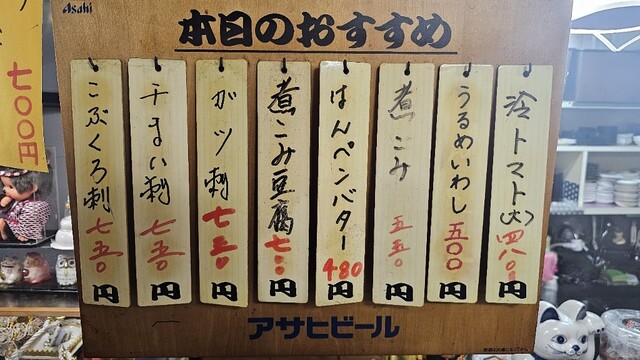 Asahi
本日のおすすめ
冷トマト(大)四八〇円
うるめいわし五〇〇円
煮こみ五五〇円
はんペンバター480円
煮こみ豆腐七〇〇円
ガツ刺七五〇円
チまい刺七五〇円
こぶくろ刺七五〇円
七〇〇円
アサヒビール